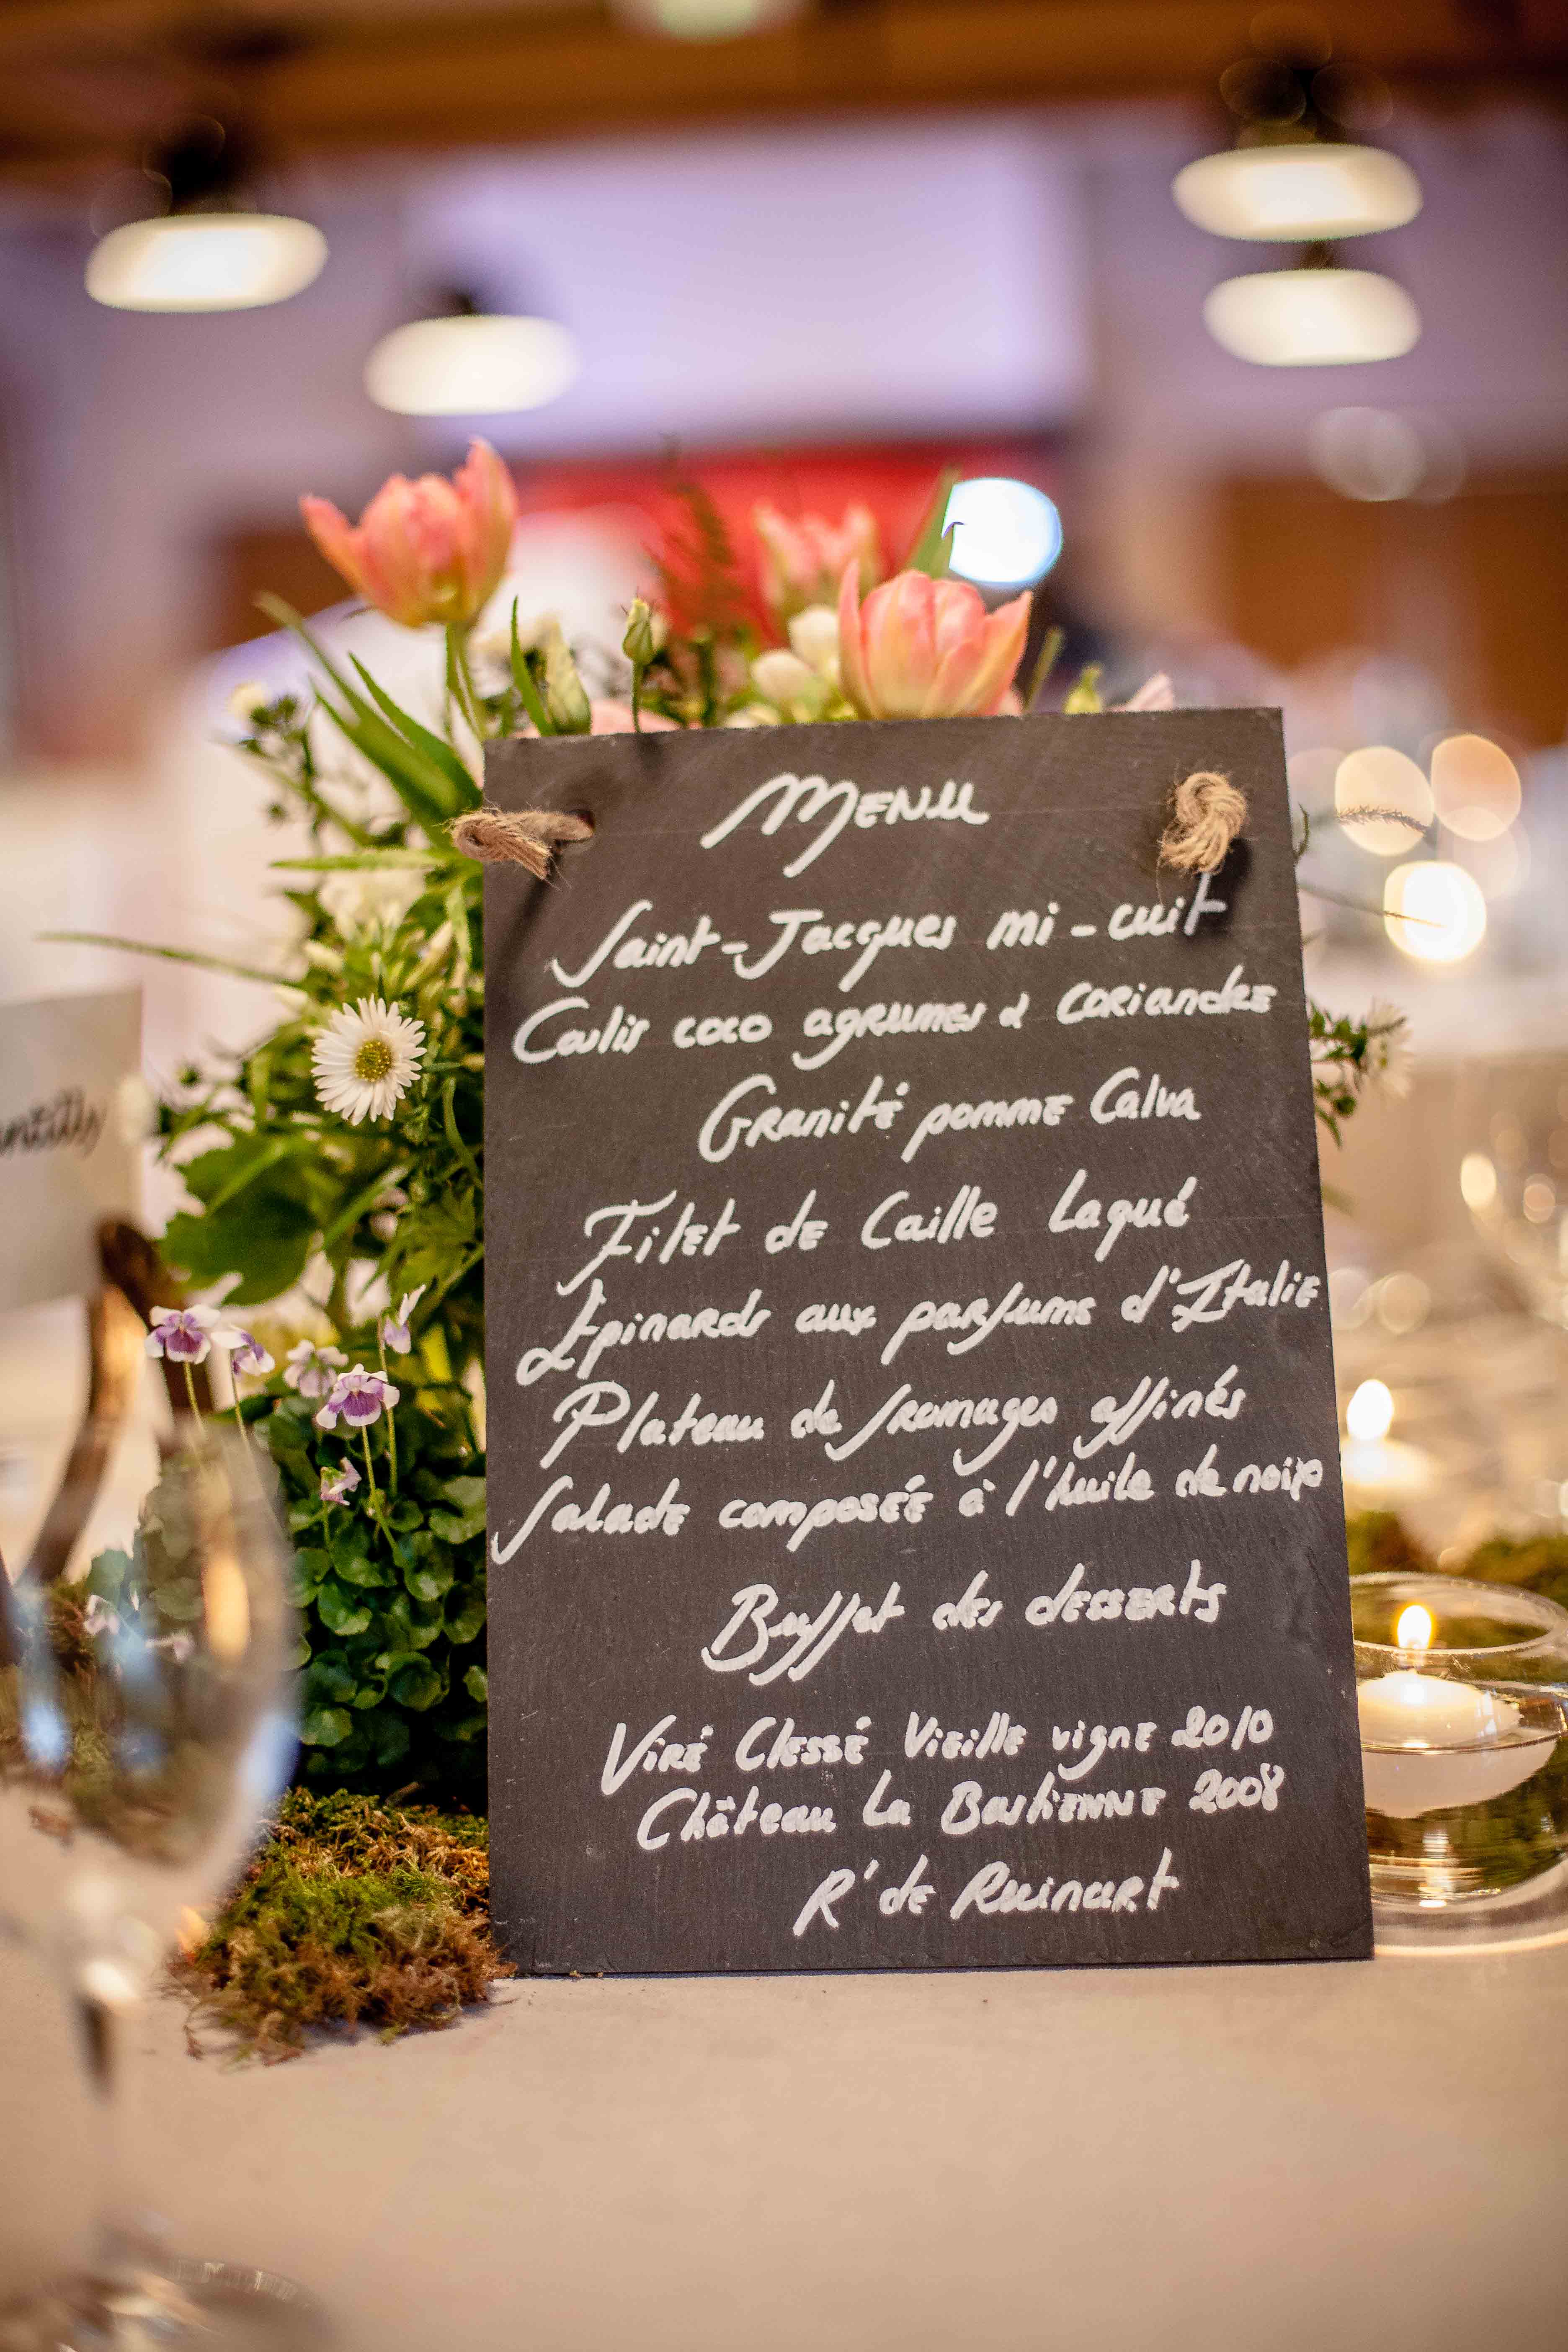 Menu
Saint-Jacques mi-cuit
Coulis coco agrumes & coriandre
Granité pomme Calva
Filet de Caille Laqué
Épinards aux parfums d'Italie
Plateau de fromages affinés
Salade composée à l'huile de noix
Buffet des desserts
Viré Clessé Vieille vigne 2010
Château La Bastienne 2008
R' de Ruinart